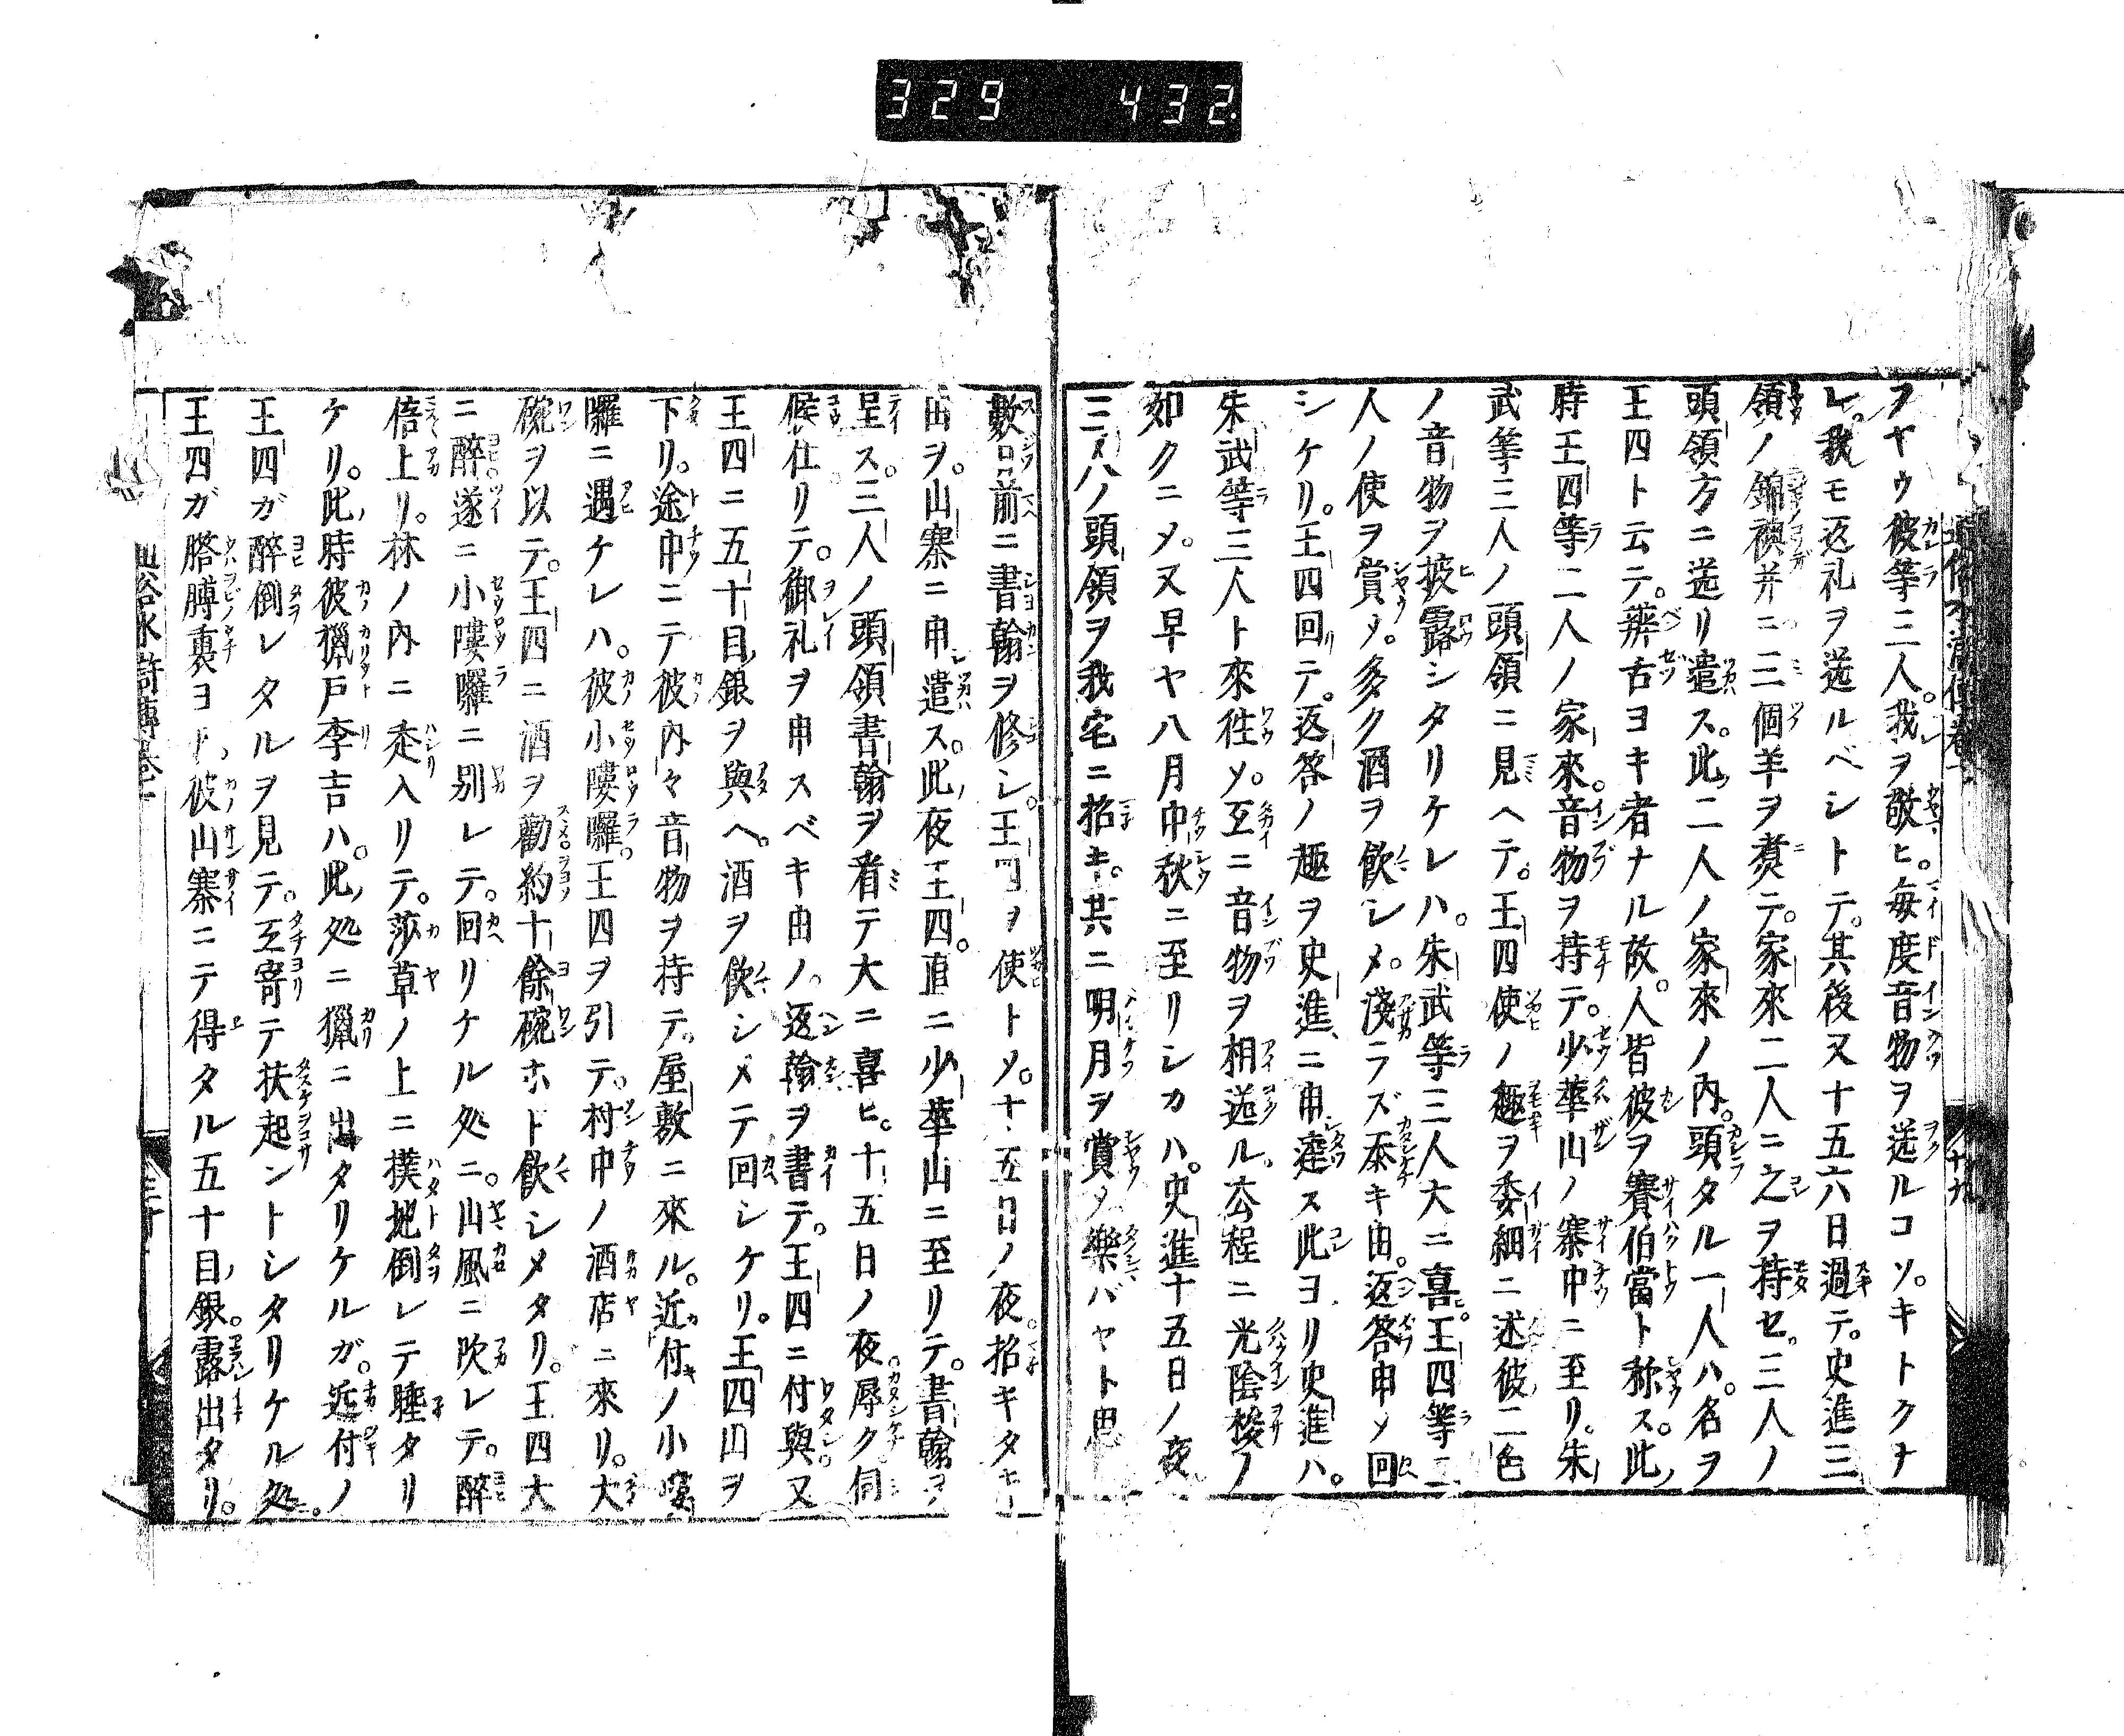 329 432
ヲヤウ彼等三人。我ヲ敬ヒ。毎度音物ヲ送ルコソ。キトクナ
レ。我モ返礼ヲ送ルベシトテ。其後又十五六日過テ。史進三
領ノ錦襖并ニ三個羊ヲ煑テ。家來二人ニ之ヲ持セ。三人ノ
頭領方ニ送リ遣ス。此二人ノ家來ノ内。頭タル一人ハ。名ヲ
王四ト云テ。辨舌ヨキ者ナル故。人皆彼ヲ賽伯當ト称ス。此
時王四等二人ノ家來。音物ヲ持テ。少華山ノ寨中ニ至リ。朱
武等三人ノ頭領ニ見ヘテ。王四使ノ趣ヲ委細ニ述彼二色
ノ音物ヲ披露シタリケレハ。朱武等三人大ニ喜。王四等二
人ノ使ヲ賞メ。多ク酒ヲ飲シメ。淺ラズ忝キ由。返答申ソ回
シケリ。王四回テ。返答ノ趣ヲ史進ニ申達ス此ヨリ史進ハ。
朱武等三人ト來徃ソ。互ニ音物ヲ相送ル。去程ニ光陰梭ノ
如クニメ。又早ヤ八月中秋ニ至リシカハ。史進十五日ノ夜
三人ノ頭領ヲ我宅ニ招キ。共ニ明月ヲ賞メ樂バヤト思
數日前ニ書翰ヲ修シ。王四ヲ使トソ。十五日ノ夜。招キタキ
由ヲ。山寨ニ申遣ス。此夜王四。直ニ少華山ニ至リテ。書翰ヲ
呈ス。三人ノ頭領書翰ヲ看テ大ニ喜ヒ。十五日ノ夜。辱ク伺
候仕リテ。御礼ヲ申スベキ由ノ。返翰ヲ書テ。王四ニ付與。又
王四ニ五十目銀ヲ與ヘ。酒ヲ飲シメテ回シケリ。王四山ヲ
下リ。途中ニテ彼内々音物ヲ持テ。屋敷ニ來ル。近付ノ小嘍
囉ニ遇ケレハ。彼小嘍囉。王四ヲ引テ。村中ノ酒店ニ來リ。大
碗ヲ以テ。王四ニ酒ヲ勸約十餘碗ホト飲シメタリ。王四大
ニ醉遂ニ小嘍囉ニ別レテ。回リケル処ニ。山風ニ吹レテ。醉
倍上リ。林ノ内ニ走入リテ。莎草ノ上ニ撲地倒レテ睡タリ
ケリ。此時彼獵戸李吉ハ。此処ニ獵ニ出タリケルガ。近付ノ
王四ガ醉倒レタルヲ見テ。立寄テ扶起ントシタリケル処ニ。
王四ガ胳膊裏ヨリ。彼山寨ニテ得タル五十目銀。露出タリ。